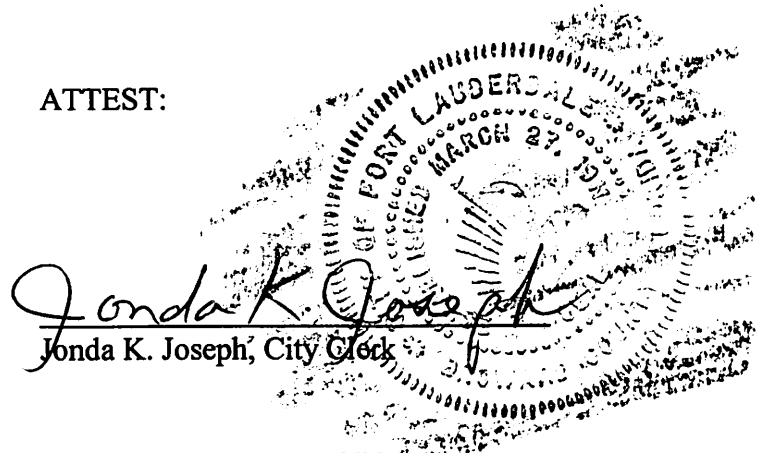 ATTEST:
OF FORT LAUDERDALE
MARCH 27, 19
Jonda K. Joseph
Jonda K. Joseph, City Clerk